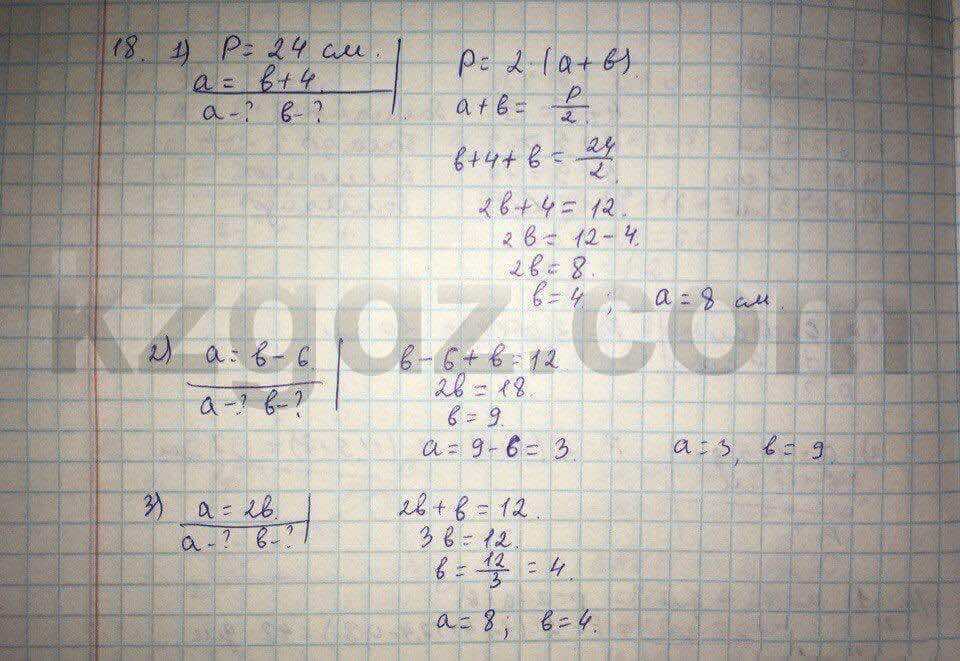 18. 1) P = 24 см.
a = в + 4.
a - ? в - ?
P = 2 · (a + в).
a + в = P/2.
в + 4 + в = 24/2.
2в + 4 = 12.
2в = 12 - 4.
2в = 8.
в = 4 ; a = 8 см.
2) a = в - 6.
a - ? в - ?
в - 6 + в = 12
2в = 18.
в = 9.
a = 9 - 6 = 3.
a = 3, в = 9.
3) a = 2в.
a - ? в - ?
2в + в = 12.
3в = 12.
в = 12/3 = 4.
a = 8 ; в = 4.
kzgaz.com